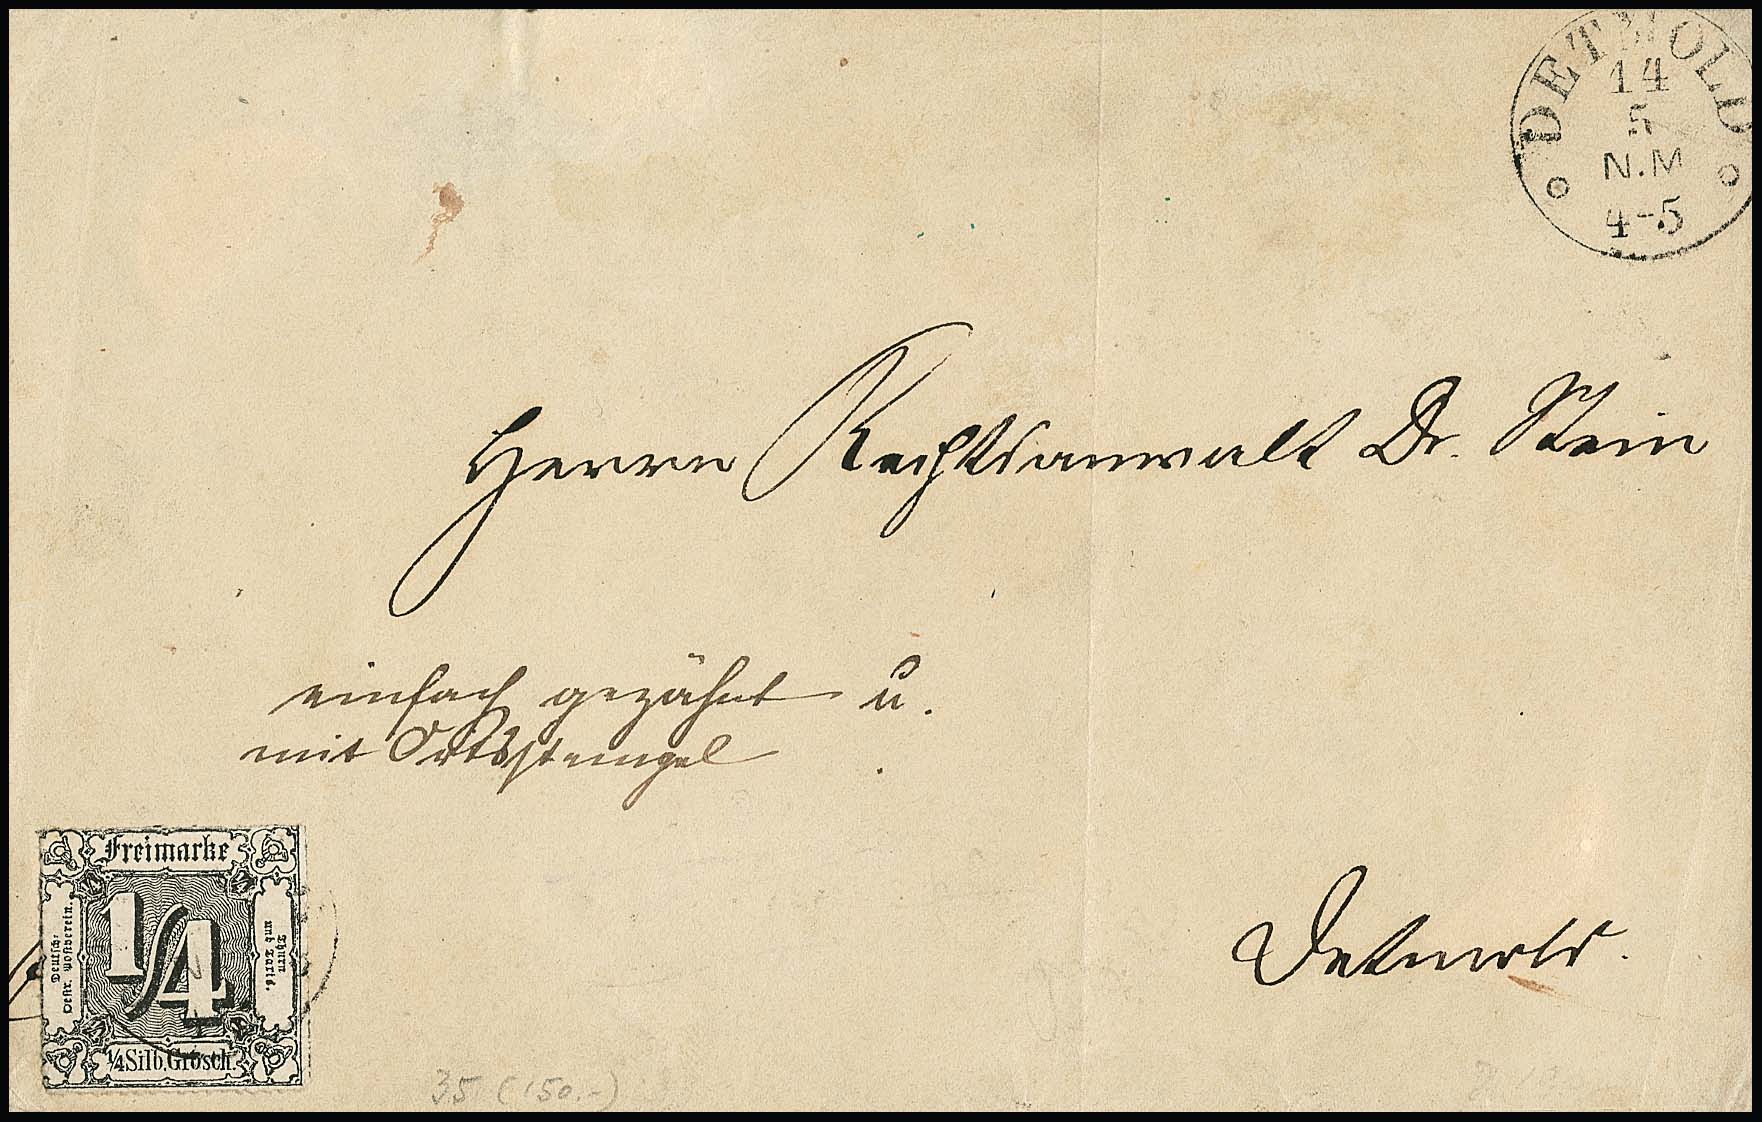 DETMOLD
14
5
N.M
4-5
Herrn Rechtsanwalt Dr. Stein
einfach gezähnt u.
mit Ortsstempel
Detmold.
Freimarke
Deutsch-
Oestr. Postverein.
1/4
Thurn
und Taxis.
1/4 Silb. Grosch.
35 (150.-)